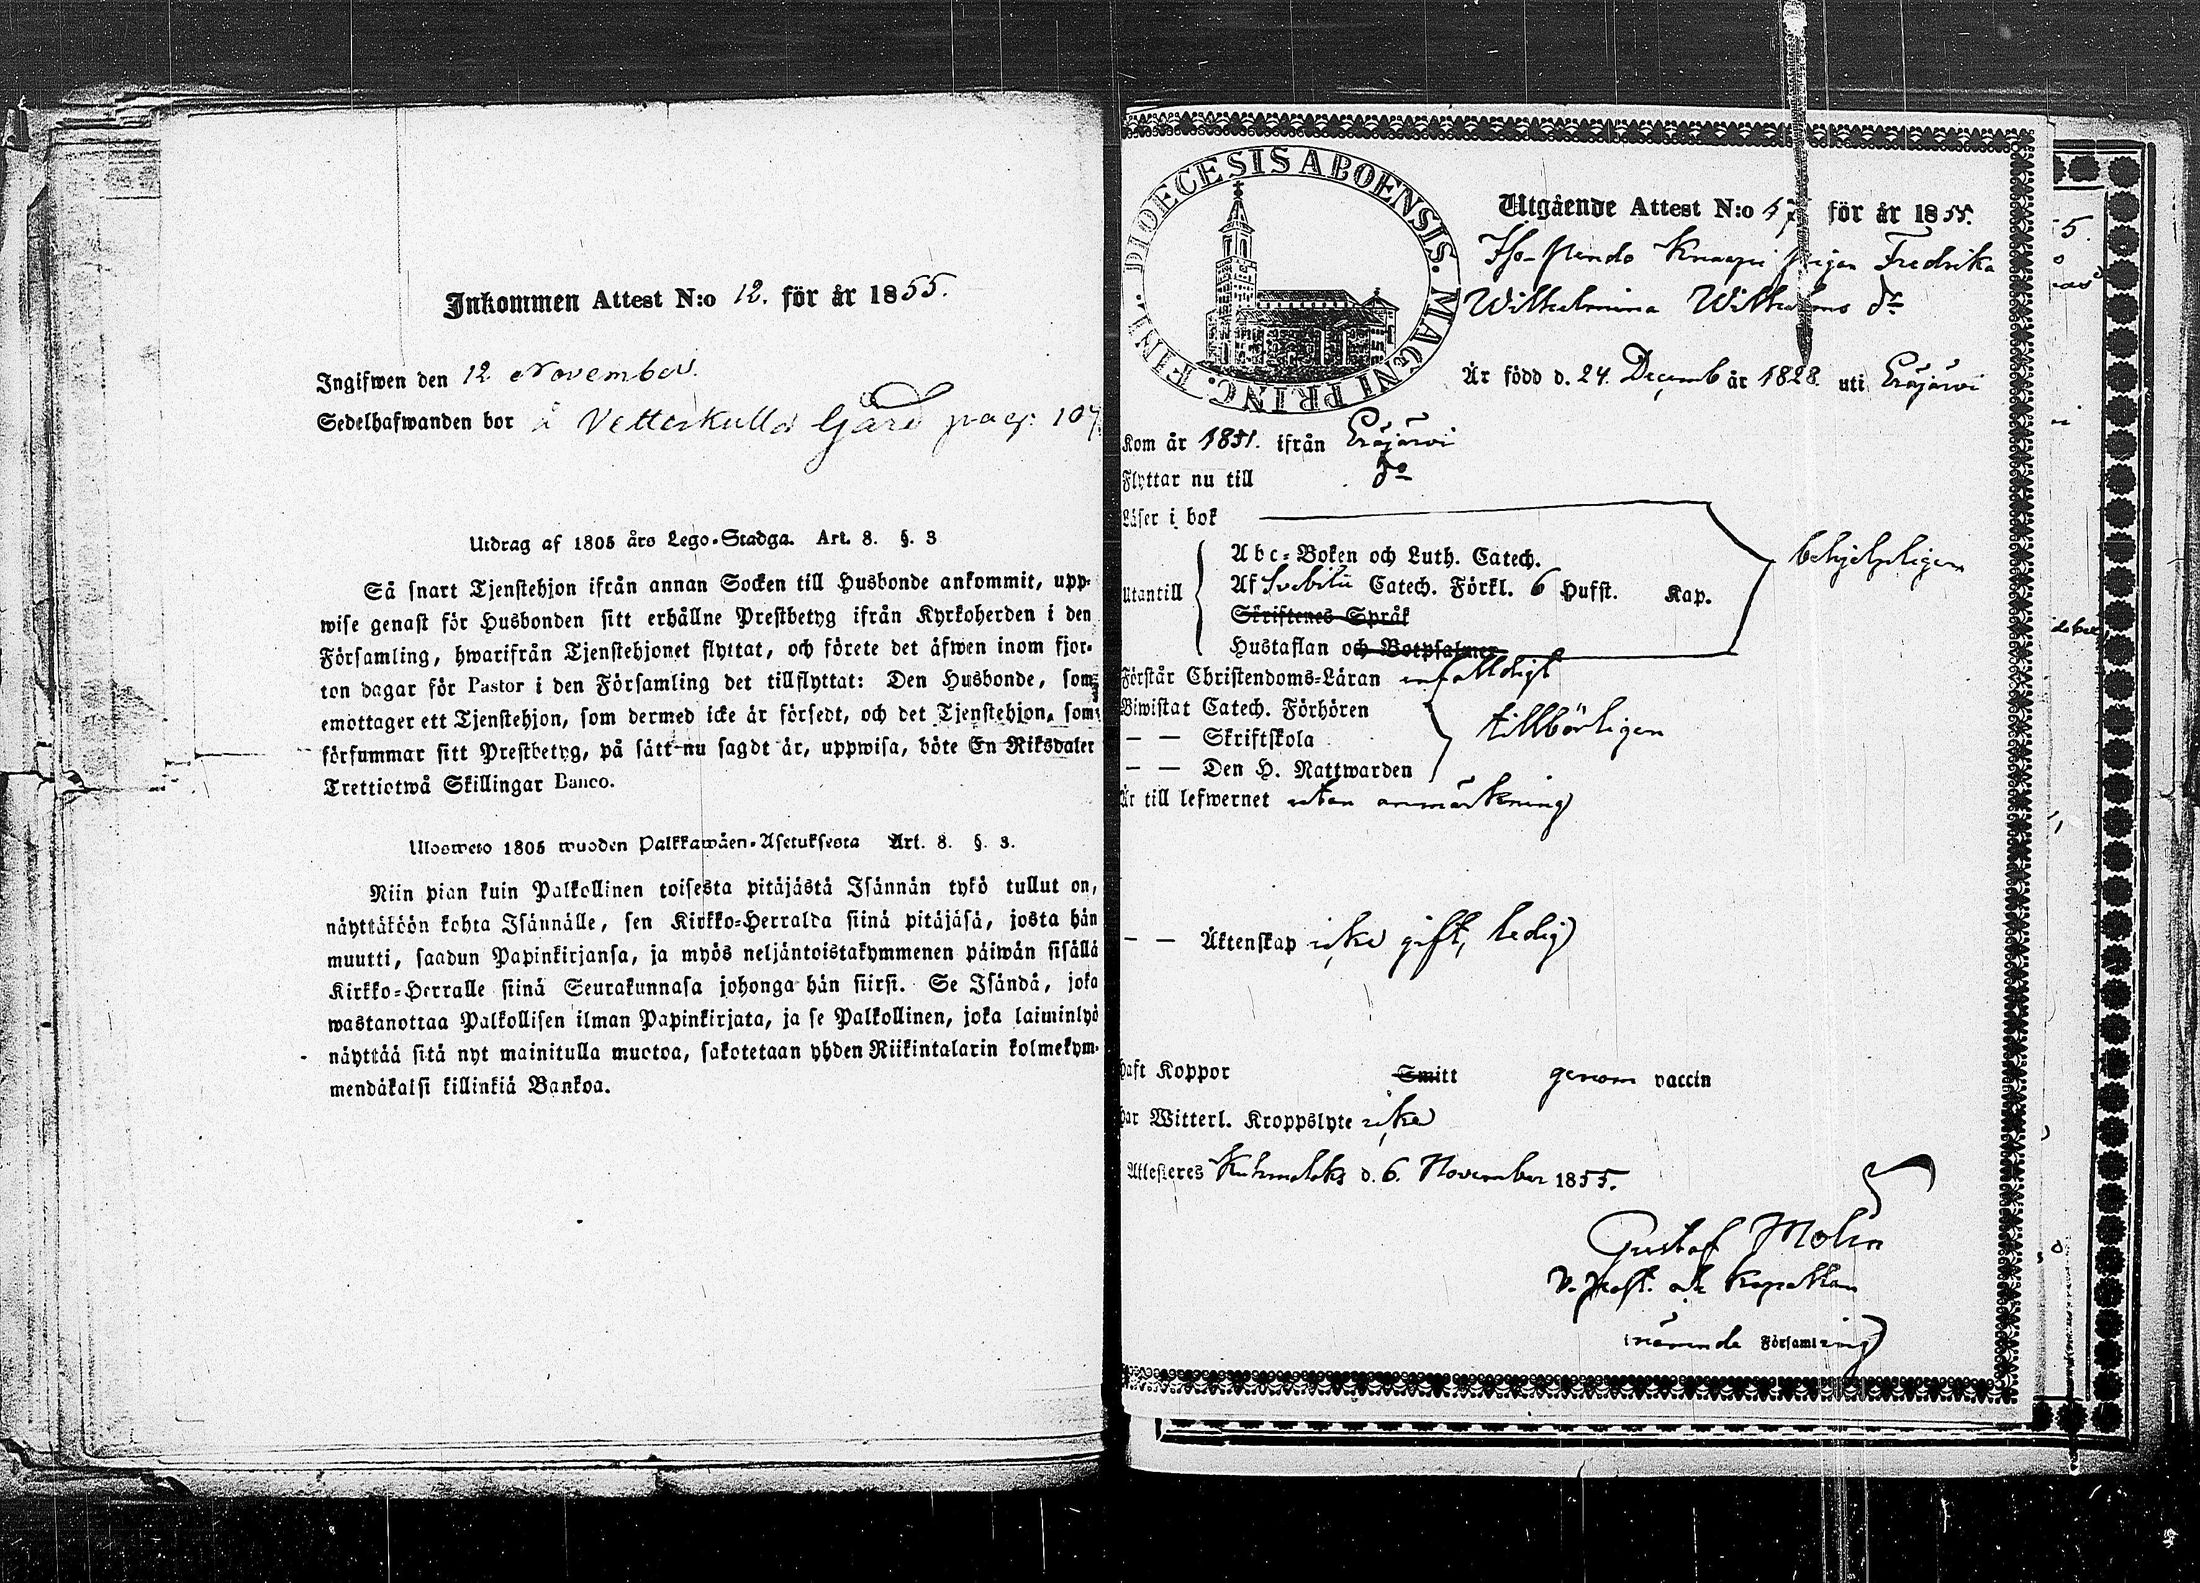 Inkommen Attest N:o 12. för år 1855.
Ingifwen den 12 November.
Sedelhafwanden bor å Vetterkulla Gård pag: 107.
Utdrag af 1805 års Lego-Stadga. Art. 8. §. 3
Så snart Tjenstehjon ifrån annan Socken till Husbonde ankommit, upp-
wise genast för Husbonden sitt erhållne Prestbetyg ifrån Kyrkoherden i den
Församling, hwarifrån Tjenstehjonet flyttat, och förete det äfwen inom fjor-
ton dagar för Pastor i den Församling det tillflyttat: Den Husbonde, som
emottager ett Tjenstehjon, som dermed icke är försedt, och det Tjenstehjon, som
försummar sitt Prestbetyg, på sätt nu sagdt är, uppwisa, böte En Riksdaler
Trettiotwå Skillingar Banco.
Ulosweto 1805 wuoden Palkkawäen-Asetuksesta Art. 8. §. 3.
Niin pian kuin Palkollinen toisesta pitäjästä Isännän tykö tullut on,
näyttäköön kohta Isännälle, sen Kirkko-Herralda siinä pitäjäsä, josta hän
muutti, saadun Papinkirjansa, ja myös neljäntoistakymmenen päiwän sisällä
Kirkko-Herralle siinä Seurakunnasa johonga hän siirsi. Se Isändä, joka
wastanottaa Palkollisen ilman Papinkirjata, ja se Palkollinen, joka laiminlyö
näyttää sitä nyt mainitulla muotoa, sakotetaan yhden Riikintalarin kolmekym-
mendäkaksi killinkiä Bankoa.
DIOECESIS ABOENSIS. MAGNI PRINC. FINL.
Utgående Attest N:o för år 1855.
Knaapi pigan Fredrika
Wilhelmina Wilhelms dr
Är född d. 24. Decemb år 1828. uti Eräjärvi
Kom år 1851. ifrån Eräjärvi
Flyttar nu till do
Läser i bok
Abc-Boken och Luth. Catech.
Utantill Af Svebilii Catech. Förkl. 6 Hufst. Kap.
behjelpligen
Skriftenes Språk
Hustaflan och Botpsalmer
Förstår Christendoms-Läran enfaldigt
Biwistat Catech. Förhören
— — Skriftskola tillbörligen
— — Den H. Nattwarden
Är till lefwernet utan anmärkning
— — Äktenskap icke gift, ledig
haft Koppor Smitt genom vaccin
har Witterl. Kroppslyte icke
Attesteres Kuhmalaks d. 6. November 1855.
Gustaf Molin
V. Past. och Kapellan
Församling